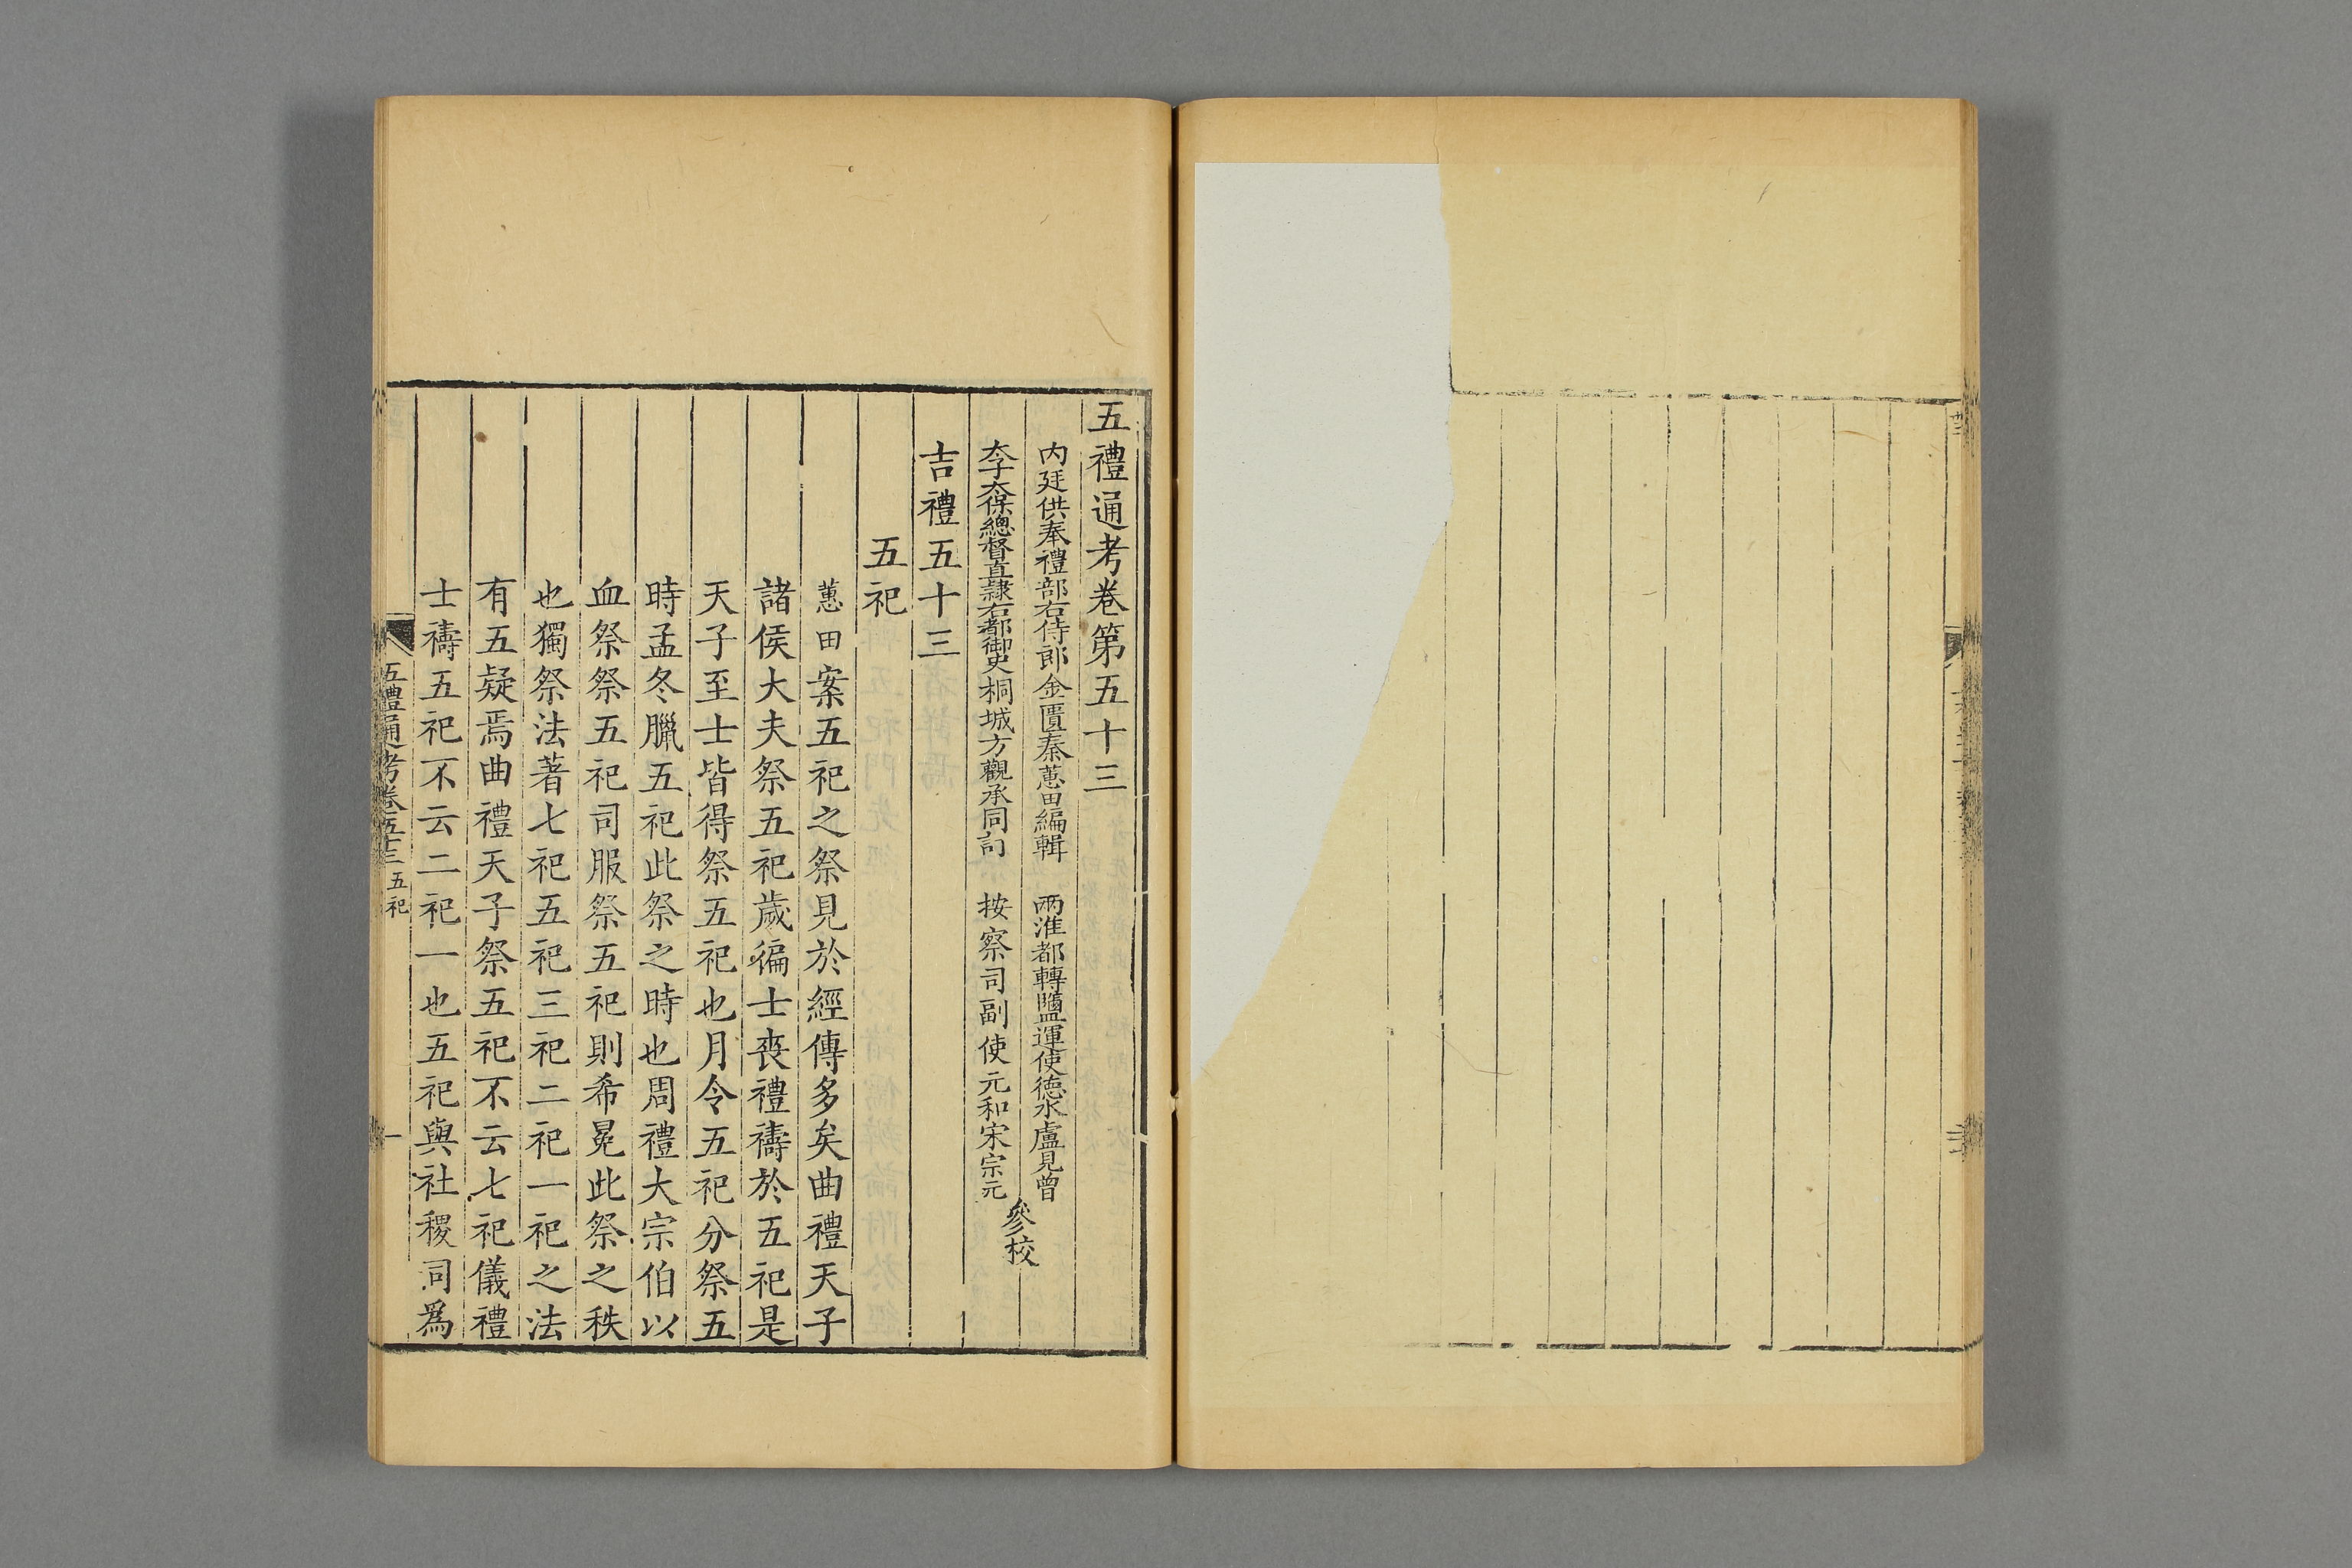 五禮通考卷第五十三
内廷供奉禮部右侍郎金匱秦蕙田編輯 兩淮都轉鹽運使德水盧見曾
太子太保總督直隸右都御史桐城方觀承同訂 按察司副使元和宋宗元
參校
吉禮五十三
五祀
蕙田案五祀之祭見於經傳多矣曲禮天子
諸侯大夫祭五祀歲徧士喪禮禱於五祀是
天子至士皆得祭五祀也月令五祀分祭五
時孟冬臘五祀此祭之時也周禮大宗伯以
血祭祭五祀司服祭五祀則希冕此祭之秩
也獨祭法著七祀五祀三祀二祀一祀之法
有五疑焉曲禮天子祭五祀不云七祀儀禮
士禱五祀不云二祀一也五祀與社稷同爲
五禮通考卷五十三 五祀 一